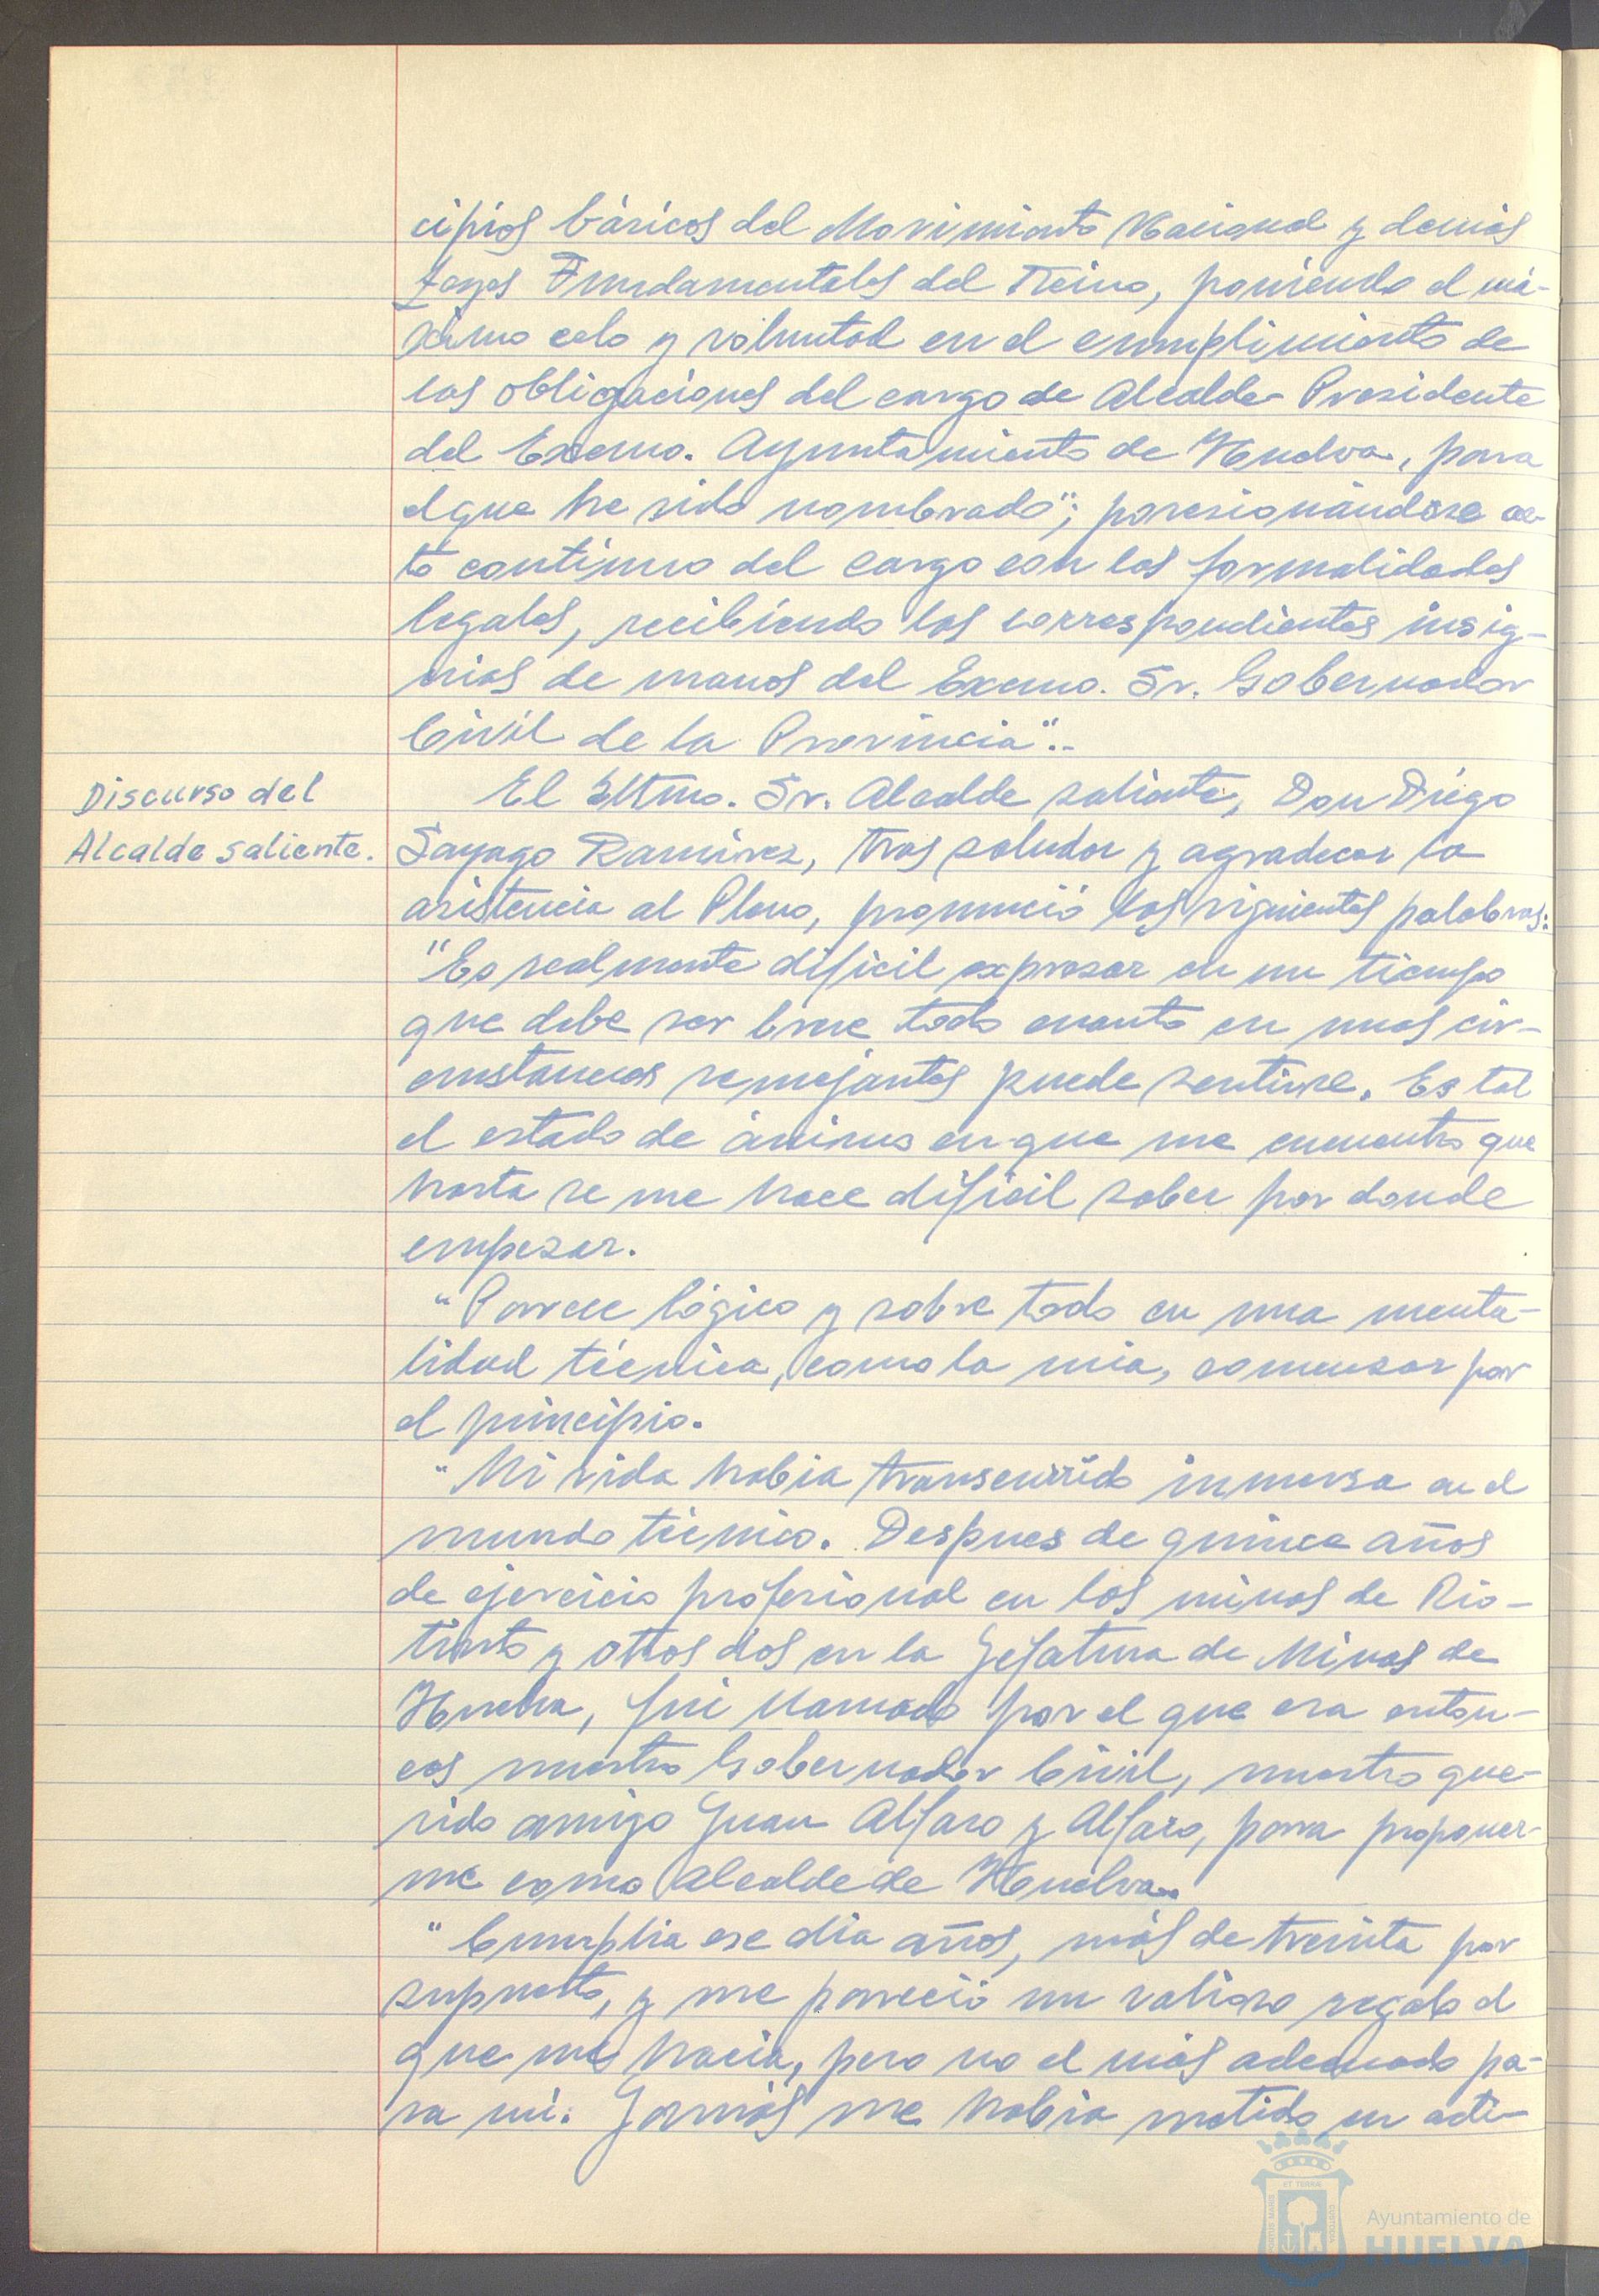 cipios básicos del Movimiento Nacional y demás
Leyes Fundamentales del Reino, poniendo el má-
ximo celo y voluntad en el cumplimiento de
las obligaciones del cargo de Alcalde-Presidente
del Excmo. Ayuntamiento de Huelva, para
el que he sido nombrado"; posesionándose ac-
to continuo del cargo con las formalidades
legales, recibiendo las correspondientes insig-
nias de manos del Excmo. Sr. Gobernador
Civil de la Provincia".-
Discurso del
Alcalde saliente.
El Iltmo. Sr. Alcalde saliente, Don Diego
Sayago Ramírez, tras saludar y agradecer la
asistencia al Pleno, pronunció las siguientes palabras:
"Es realmente difícil expresar en un tiempo
que debe ser breve todo cuanto en unas cir-
cunstancias semejantes puede sentirse. Es tal
el estado de ánimo en que me encuentro que
hasta se me hace difícil saber por donde
empezar.
"Parece lógico y sobre todo en una menta-
lidad técnica, como la mia, comenzar por
el principio.
"Mi vida habia transcurrido inmersa en el
mundo técnico. Despues de quince años
de ejercicio profesional en las minas de Rio-
tinto y otros dos en la Jefatura de Minas de
Huelva, fui llamado por el que era enton-
ces nuestro Gobernador Civil, nuestro que-
rido amigo Juan Alfaro y Alfaro, para proponer-
me como Alcalde de Huelva.
"Cumplia ese dia años, más de treinta por
supuesto, y me pareció un valioso regalo el
que me hacia, pero no el más adecuado pa-
ra mí. Jamás me habia metido en acti-
Ayuntamiento de
HUELVA